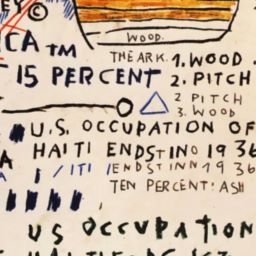 EY ©
WOOD.
CA TM
THE ARK. 1. WOOD.
15 PERCENT 2. PITCH
2 PITCH
3. WOOD
U.S. OCCUPATION OF
HAITI ENDST IN 1936
A
/ITI ENDST INN 1936
TEN PERCENT: ASH
US OCCUPATION